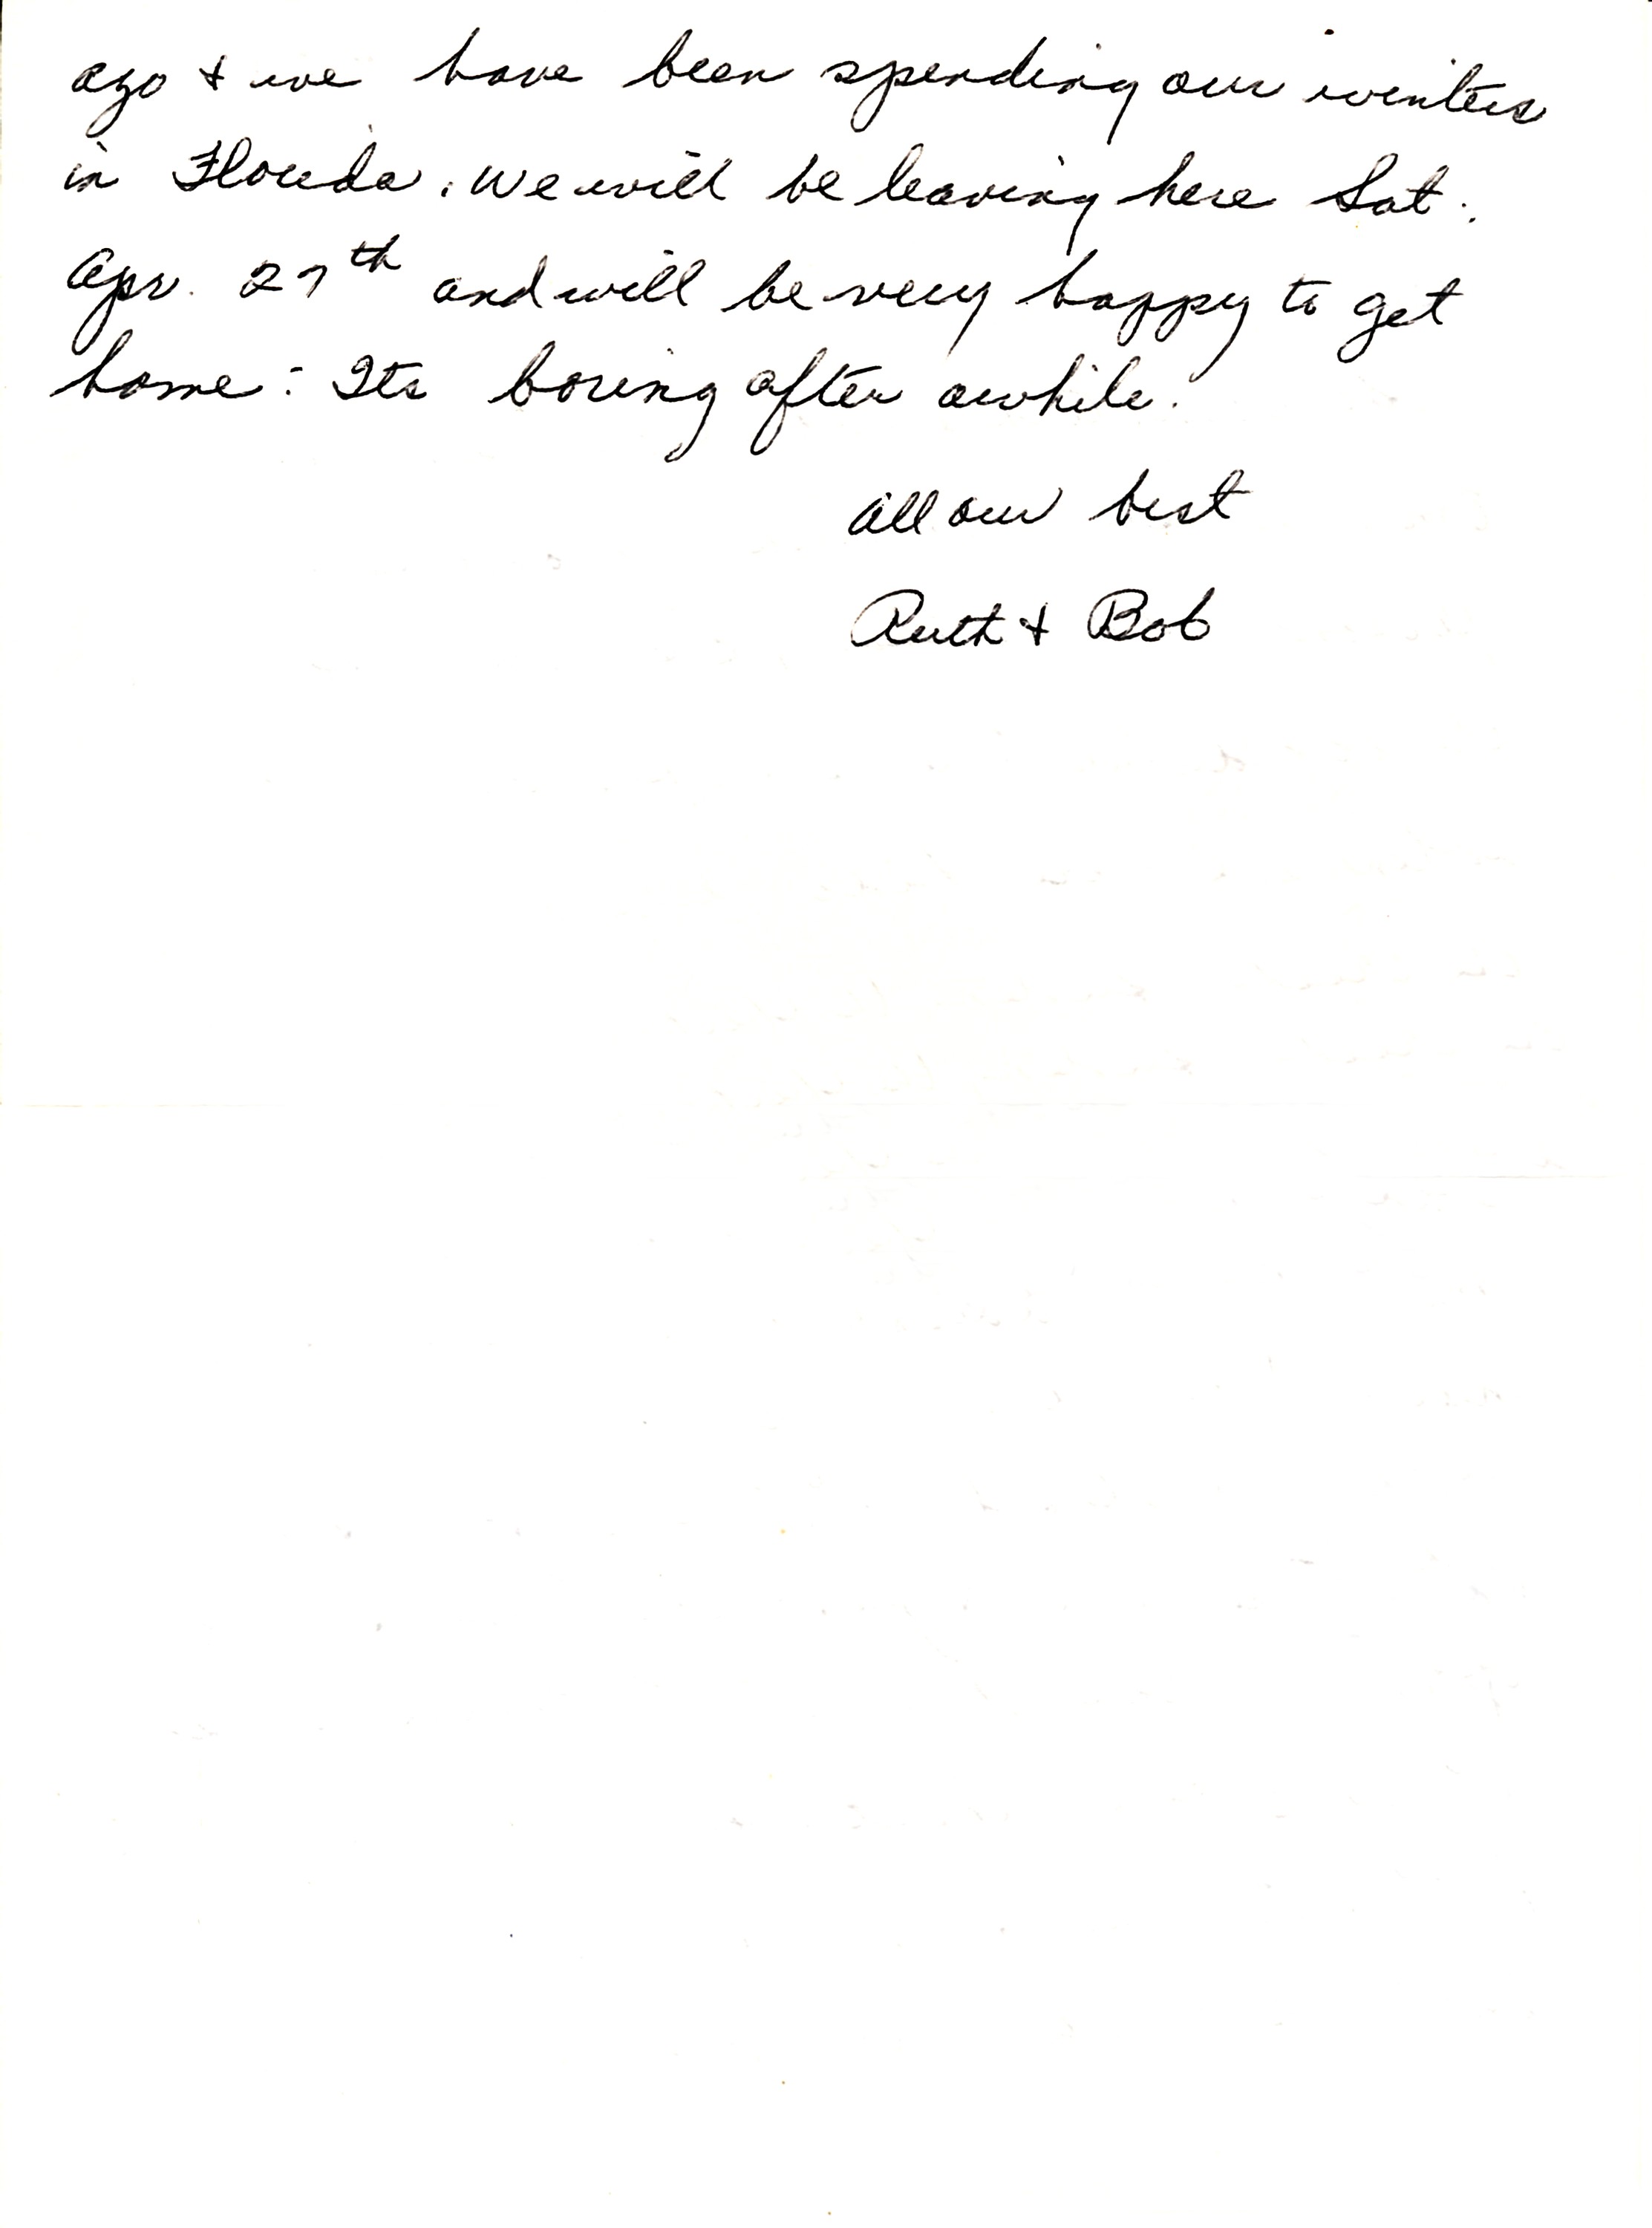 ago + we have been spending our winters
in Florida. We will be leaving here Sat.
Apr. 27th and will be very happy to get
home. Its boring after awhile.
All our best
Ruth + Bob